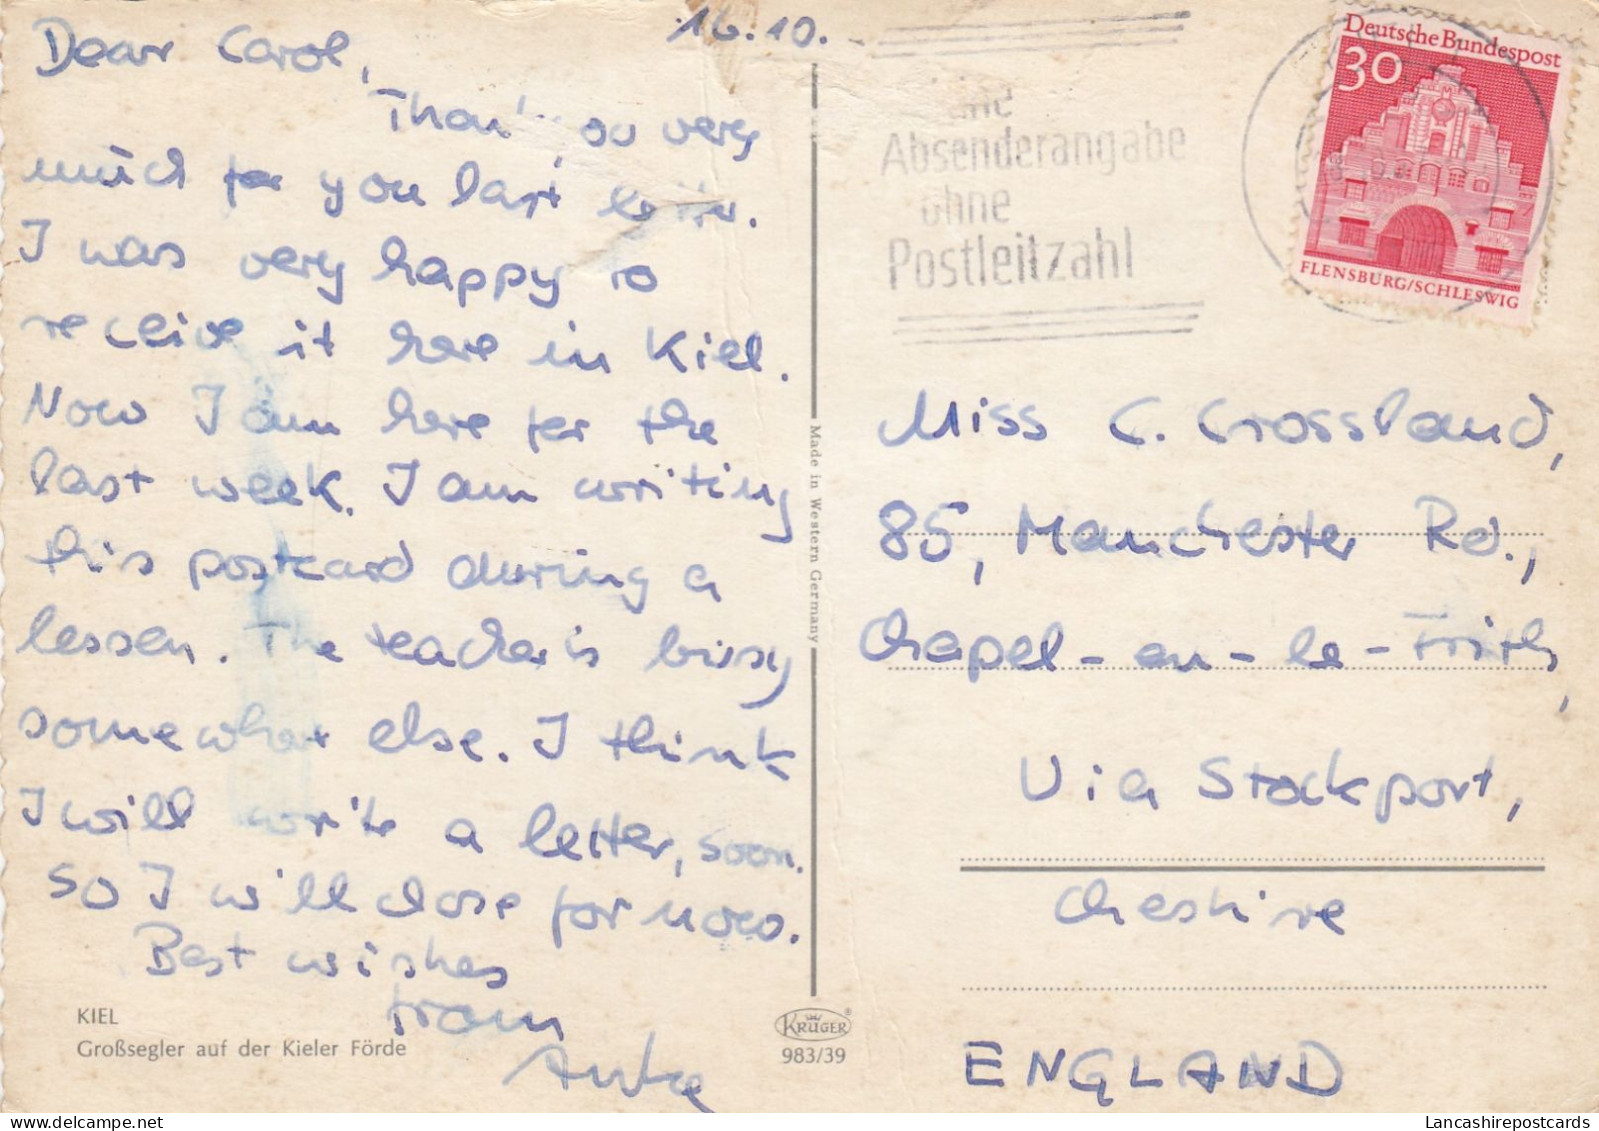 16.10.
Dear Carol,
Thank you very
much for you last letter.
I was very happy to
receive it here in Kiel.
Now I am here for the
last week. I am writing
this postcard during a
lessen. The teacher is busy
somewhat else. I think
I will write a letter, soon.
So I will close for now.
Best wishes
from
Anke
KIEL
Großsegler auf der Kieler Förde
Made in Western Germany
KRÜGER
983/39
Absenderangabe
ohne
Postleitzahl
Deutsche Bundespost
30
FLENSBURG/SCHLESWIG
Miss C. Crossland,
85, Manchester Rd.,
Chapel-en-le-Frith,
Via Stockport,
Cheshire
ENGLAND
Lancashirepostcards